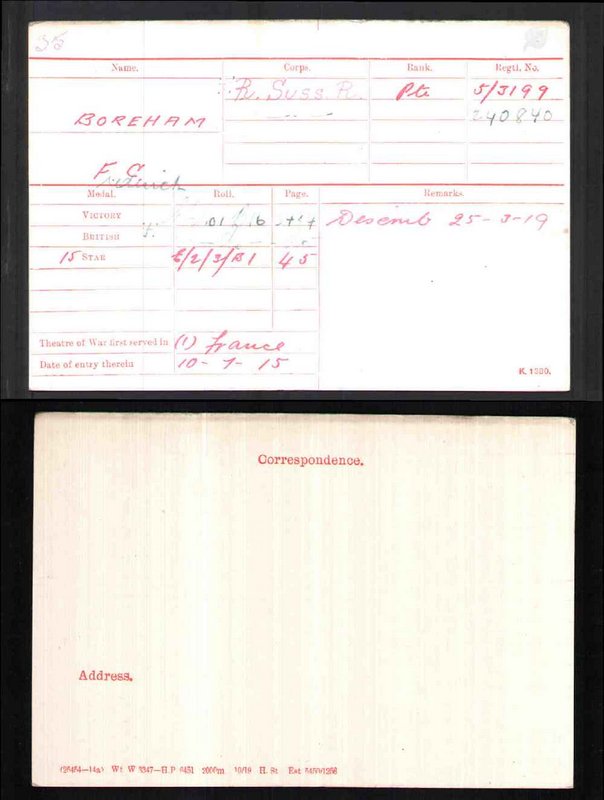 35
Name. Corps. Rank. Regtl. No.
BOREHAM R. Suss. R. Pte 5/3199
240840
F. C.
Frederick
Medal. Roll. Page. Remarks.
VICTORY Disemb 25-3-19
BRITISH
15 STAR E/2/3/B1 45
Theatre of War first served in (1) France
Date of entry therein 10-7-15
K. 1380.
Correspondence.
Address.
Wt W 3347—H.P 2000m 10/19 H. St